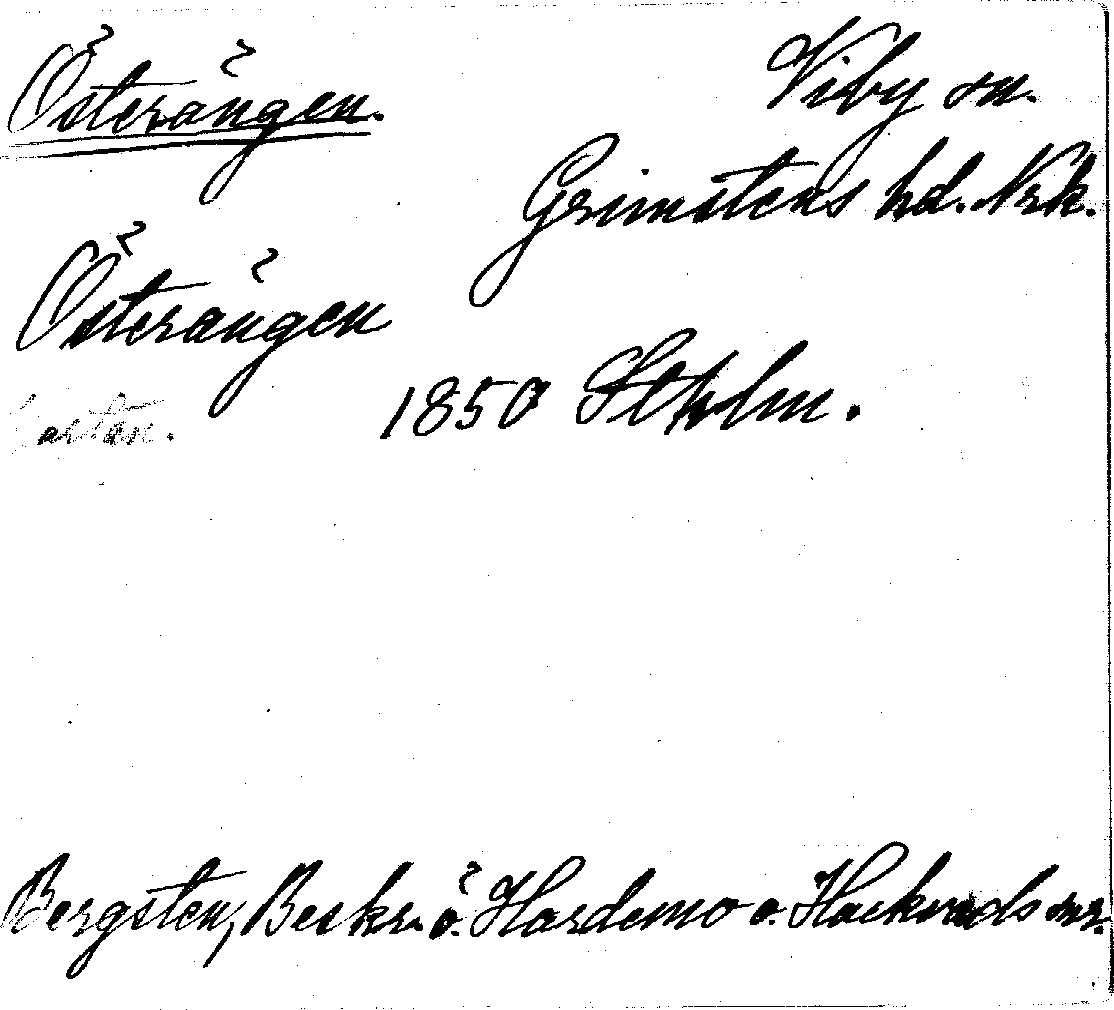 Österängen.
Viby sn.
Grimstens hd. Nrk.
Österängen
Kartan. 1850 Sthlm.
Bergsten, Beskr. ö. Hardemo o. Hackvads snr.